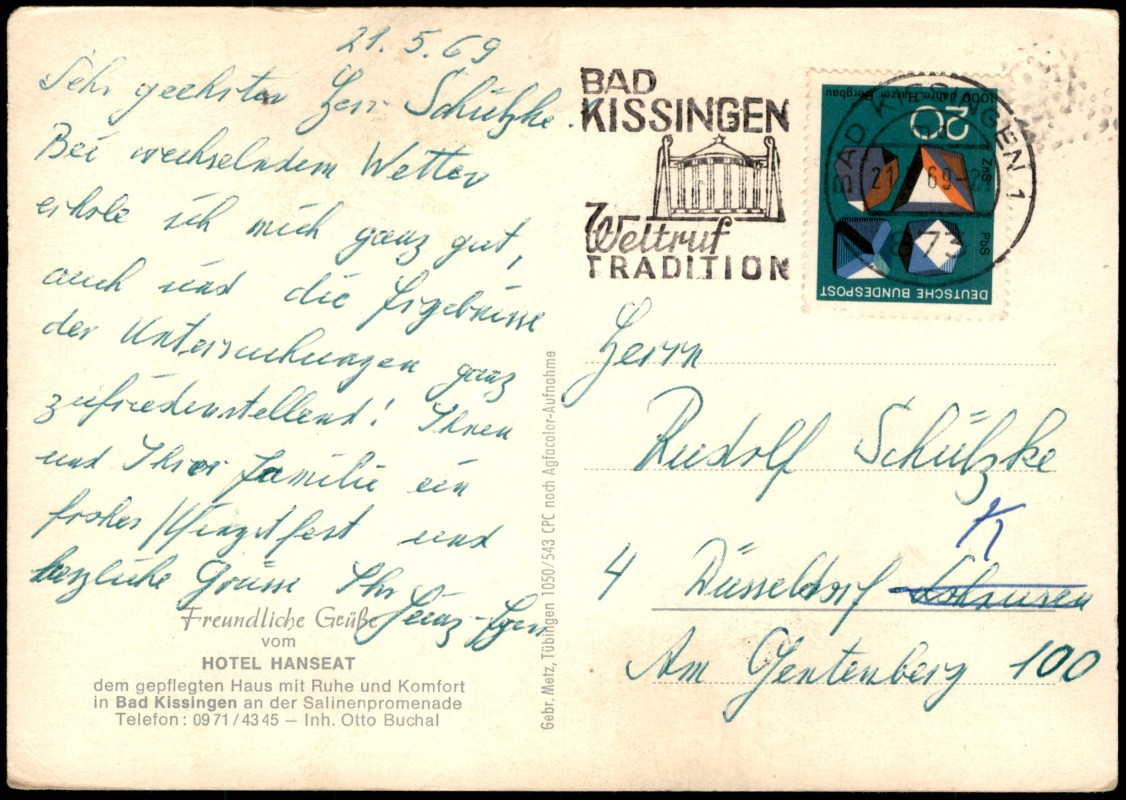 21.5.69
Sehr geehrter Herr Schützke.
Bei wechselndem Wetter
erhole ich mich ganz gut,
auch sind die Ergebnisse
der Untersuchungen ganz
zufriedenstellend! Ihnen
und Ihrer Familie ein
frohes Pfingstfest und
herzliche Grüsse Ihr
Freundliche Grüße
vom
HOTEL HANSEAT
dem gepflegten Haus mit Ruhe und Komfort
in Bad Kissingen an der Salinenpromenade
Telefon: 0971/4345 – Inh. Otto Buchal
Gebr. Metz, Tübingen 1050/543 CPC nach Agfacolor-Aufnahme
BAD
KISSINGEN
Weltruf
TRADITION
BAD KISSINGEN 1
21 69-21
873
m
1000 Jahre Harzer Bergbau
20
ZnS
PbS
DEUTSCHE BUNDESPOST
Herrn
Rudolf Schützke
K
4 Düsseldorf Lohausen
Am Gentenberg 100